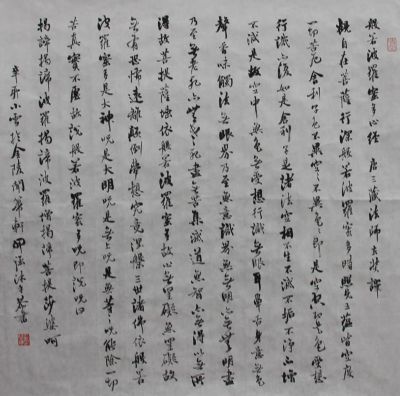 般若波羅蜜多心經 唐三藏法師玄奘譯
觀自在菩薩行深般若波羅蜜多時照見五蘊皆空度
一切苦厄舍利子色不異空空不異色色即是空空即是色受想
行識亦復如是舍利子是諸法空相不生不滅不垢不淨不增
不減是故空中無色無受想行識無眼耳鼻舌身意無色
聲香味觸法無眼界乃至無意識界無無明亦無無明盡
乃至無老死亦無老死盡無苦集滅道無智亦無得以無所
得故菩提薩埵依般若波羅蜜多故心無罣礙無罣礙故
無有恐怖遠離顛倒夢想究竟涅槃三世諸佛依般若
波羅蜜多是大神咒是大明咒是無上咒是無等等咒能除一切
苦真實不虛故說般若波羅蜜多咒即說咒曰
揭諦揭諦波羅揭諦波羅僧揭諦菩提莎婆呵
辛卯小雪於金陵 軒 沐 書